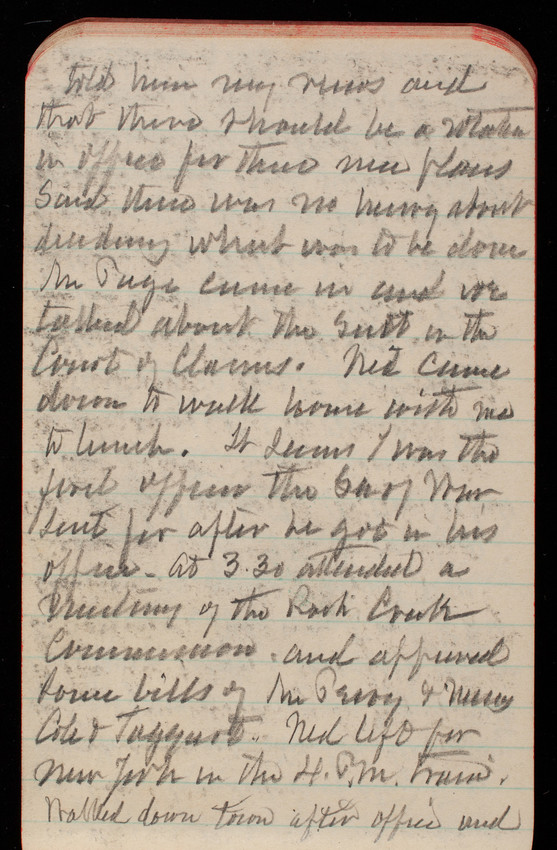 told him my views and
that there should be a rotation
in office for these nice places
Said there was no hurry about
deciding what was to be done
Mr Page came in and we
talked about the Suit in the
Court of Claims. Ned came
down to walk home with me
to lunch. It seems I was the
first officer the Sec of War
sent for after he got in his
office. At 3.30 attended a
Meeting of the Rock Creek
Commission. and approved
some bills of Mr Perry & Messrs
Cole & Taggart. Ned left for
New York in the 4. P.M. train.
Walked down town after office and